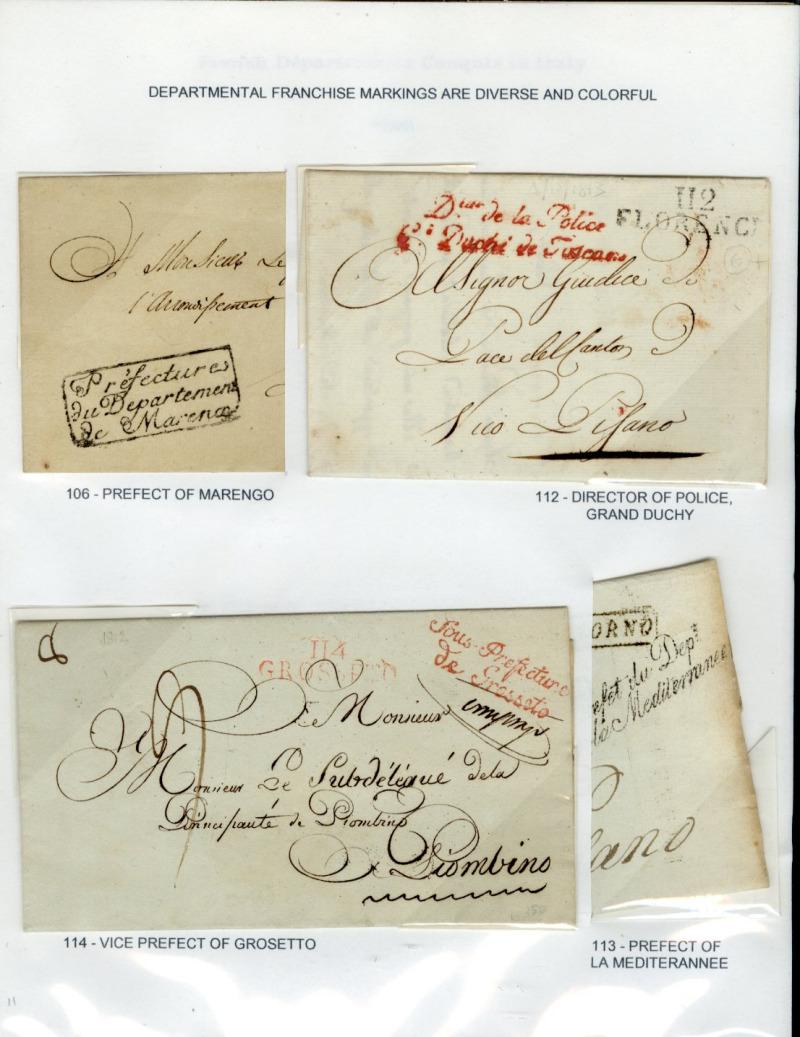 DEPARTMENTAL FRANCHISE MARKINGS ARE DIVERSE AND COLORFUL
A Monsieur Le
l'Arrondissement
Préfecture
du Departement
de Marengo
106 - PREFECT OF MARENGO
D.eur de la Police
Duché de Toscane
112
FLORENC
Al Signor Giudice di
Pace del Canton
Vico Pisano
112 - DIRECTOR OF POLICE,
GRAND DUCHY
8
1812
114
GROSSETO
Sous-Prefecture
de Grosseto
A Monsieur
Monsieur Le Subdélégué de la
Principauté de Piombino
Piombino
114 - VICE PREFECT OF GROSETTO
ORNO
efet du Dept
la Mediterranée
ano
113 - PREFECT OF
LA MEDITERANNEE
11